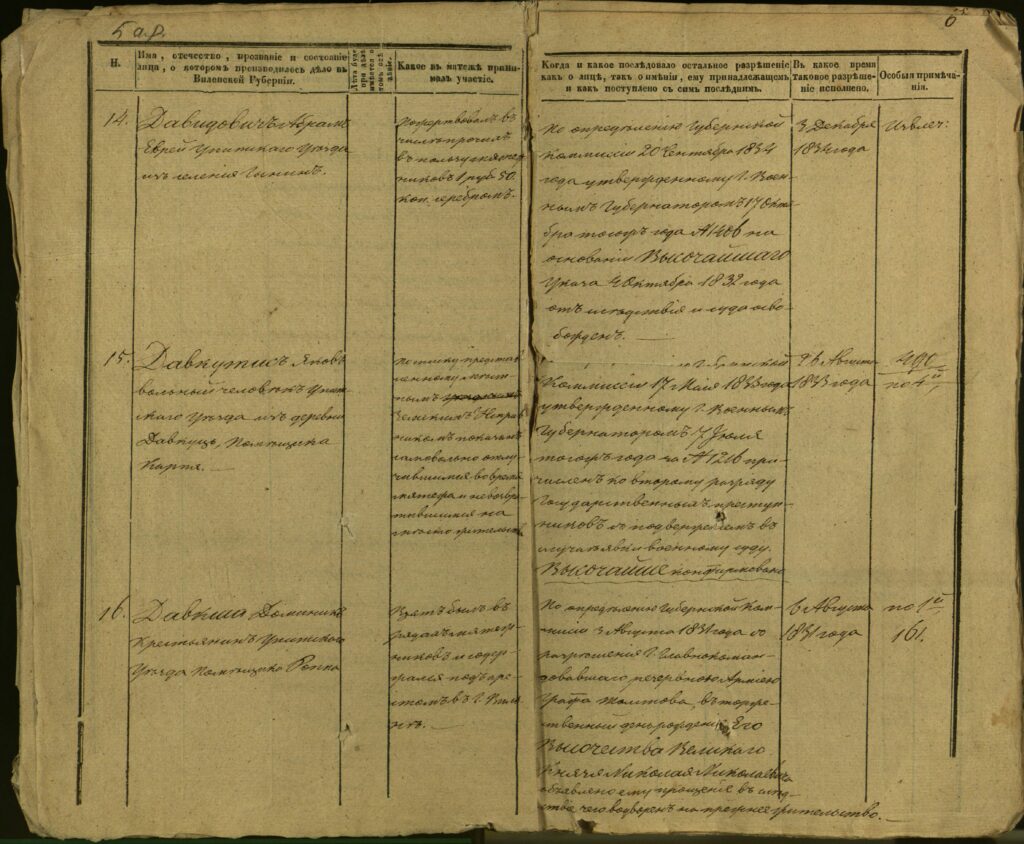 5 а.д.
6
Н.
Имя, отечество, прозваніе и состояніе
лица, о которомъ производилось дѣло въ
Виленской Губерніи.
Какое въ мятежѣ прини-
малъ участіе.
Когда и какое послѣдовало остальное разрѣшеніе
какъ о лицѣ, такъ о имѣніи, ему принадлежащемъ
и какъ поступлено съ симъ послѣднимъ.
Въ какое время
таковое разрѣше-
ніе исполнено.
Особыя примѣча-
нія.
14.
Давидовичъ Абрамъ
Еврей Упитскаго Уѣзда
изъ селенія
Пожертвовалъ въ
въ пользу мятеж-
никовъ 1 руб. 50.
коп. серебромъ.
По опредѣленію Губернской
Коммисіи 20 Сентября 1834
года утвержденному Г. Воен-
нымъ Губернаторомъ 17 Октя-
бря тогожъ года №1406 на
основаніи Высочайшаго
Указа 4 Октября 1832 года
отъ слѣдствія и суда осво-
божденъ.
3 Декабря
1834 года
Извлеч:
15.
Давкутисъ Яковъ
вольный человѣкъ Упит-
скаго Уѣзда изъ деревни
Давкуць, Помѣщика
Карпя.
По списку представ-
ленному
Земскимъ Исправ-
никомъ показанъ
самовольно отлу-
чившимся во время
мятежа и невозвра-
тившимся на
мѣсто жительства
Коммисіи 17 1833 года
утвержденному Г. Военнымъ
Губернаторомъ 7 Іюля
тогожъ года за №1216 при-
численъ ко второму разряду
Государственныхъ преступ-
никовъ съ подверженіемъ въ
случаѣ явки военному суду.
Высочайше конфирмовано
Августа
1833 года
490
по 4
16.
Давкша Доминикъ
Крестьянинъ Упитскаго
Уѣзда Помѣщика Роппа
Взятъ былъ въ
мятеж-
никовъ и содер-
жался подъ аре-
стомъ въ г. Виль-
нѣ.
По опредѣленію Губернской Ком-
мисіи 3 Августа 1831 года съ
разрѣшенія Г. Главнокоман-
довавшаго резервною Арміею
Графа Толстова, въ торже-
ственный день рожденія Его
Высочества Великаго
Князя Николая Николаевича
объявлено ему прощеніе въ слѣд-
ствіе чего водворенъ на прежнее жительство.
6 Августа
1831 года
по 1
161.